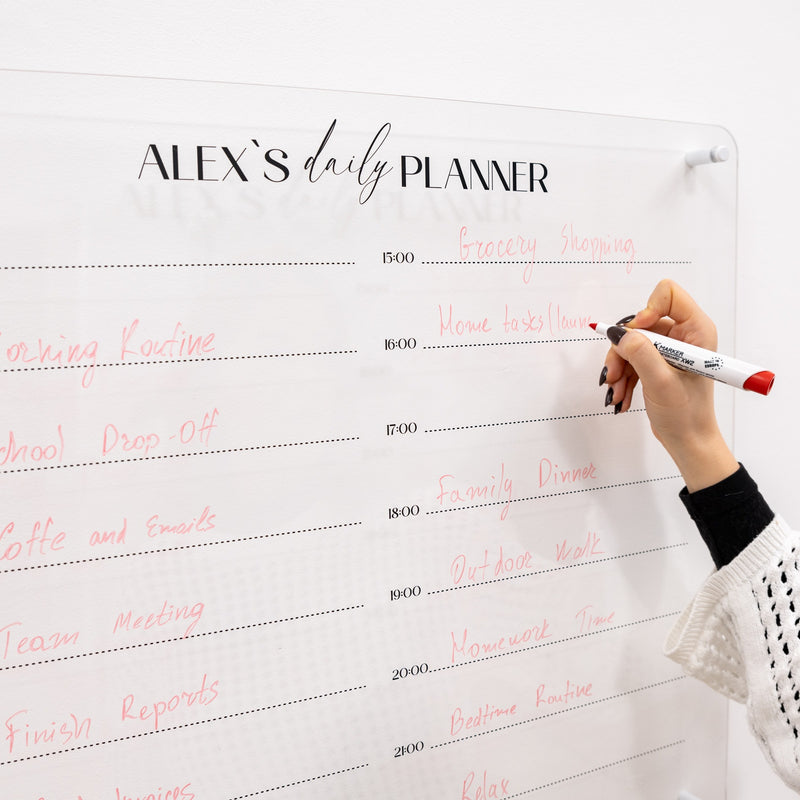 ALEX`S daily PLANNER
orning Routine
chool Drop-Off
Coffe and Emails
Team Meeting
Finish Reports
Invoices
15:00 Grocery Shopping
16:00 Home tasks (laun
17:00
18:00 Family Dinner
19:00 Outdoor Walk
20:00 Homework Time
21:00 Bedtime Routine
Relax
MARKER
MADE IN
EUROPE